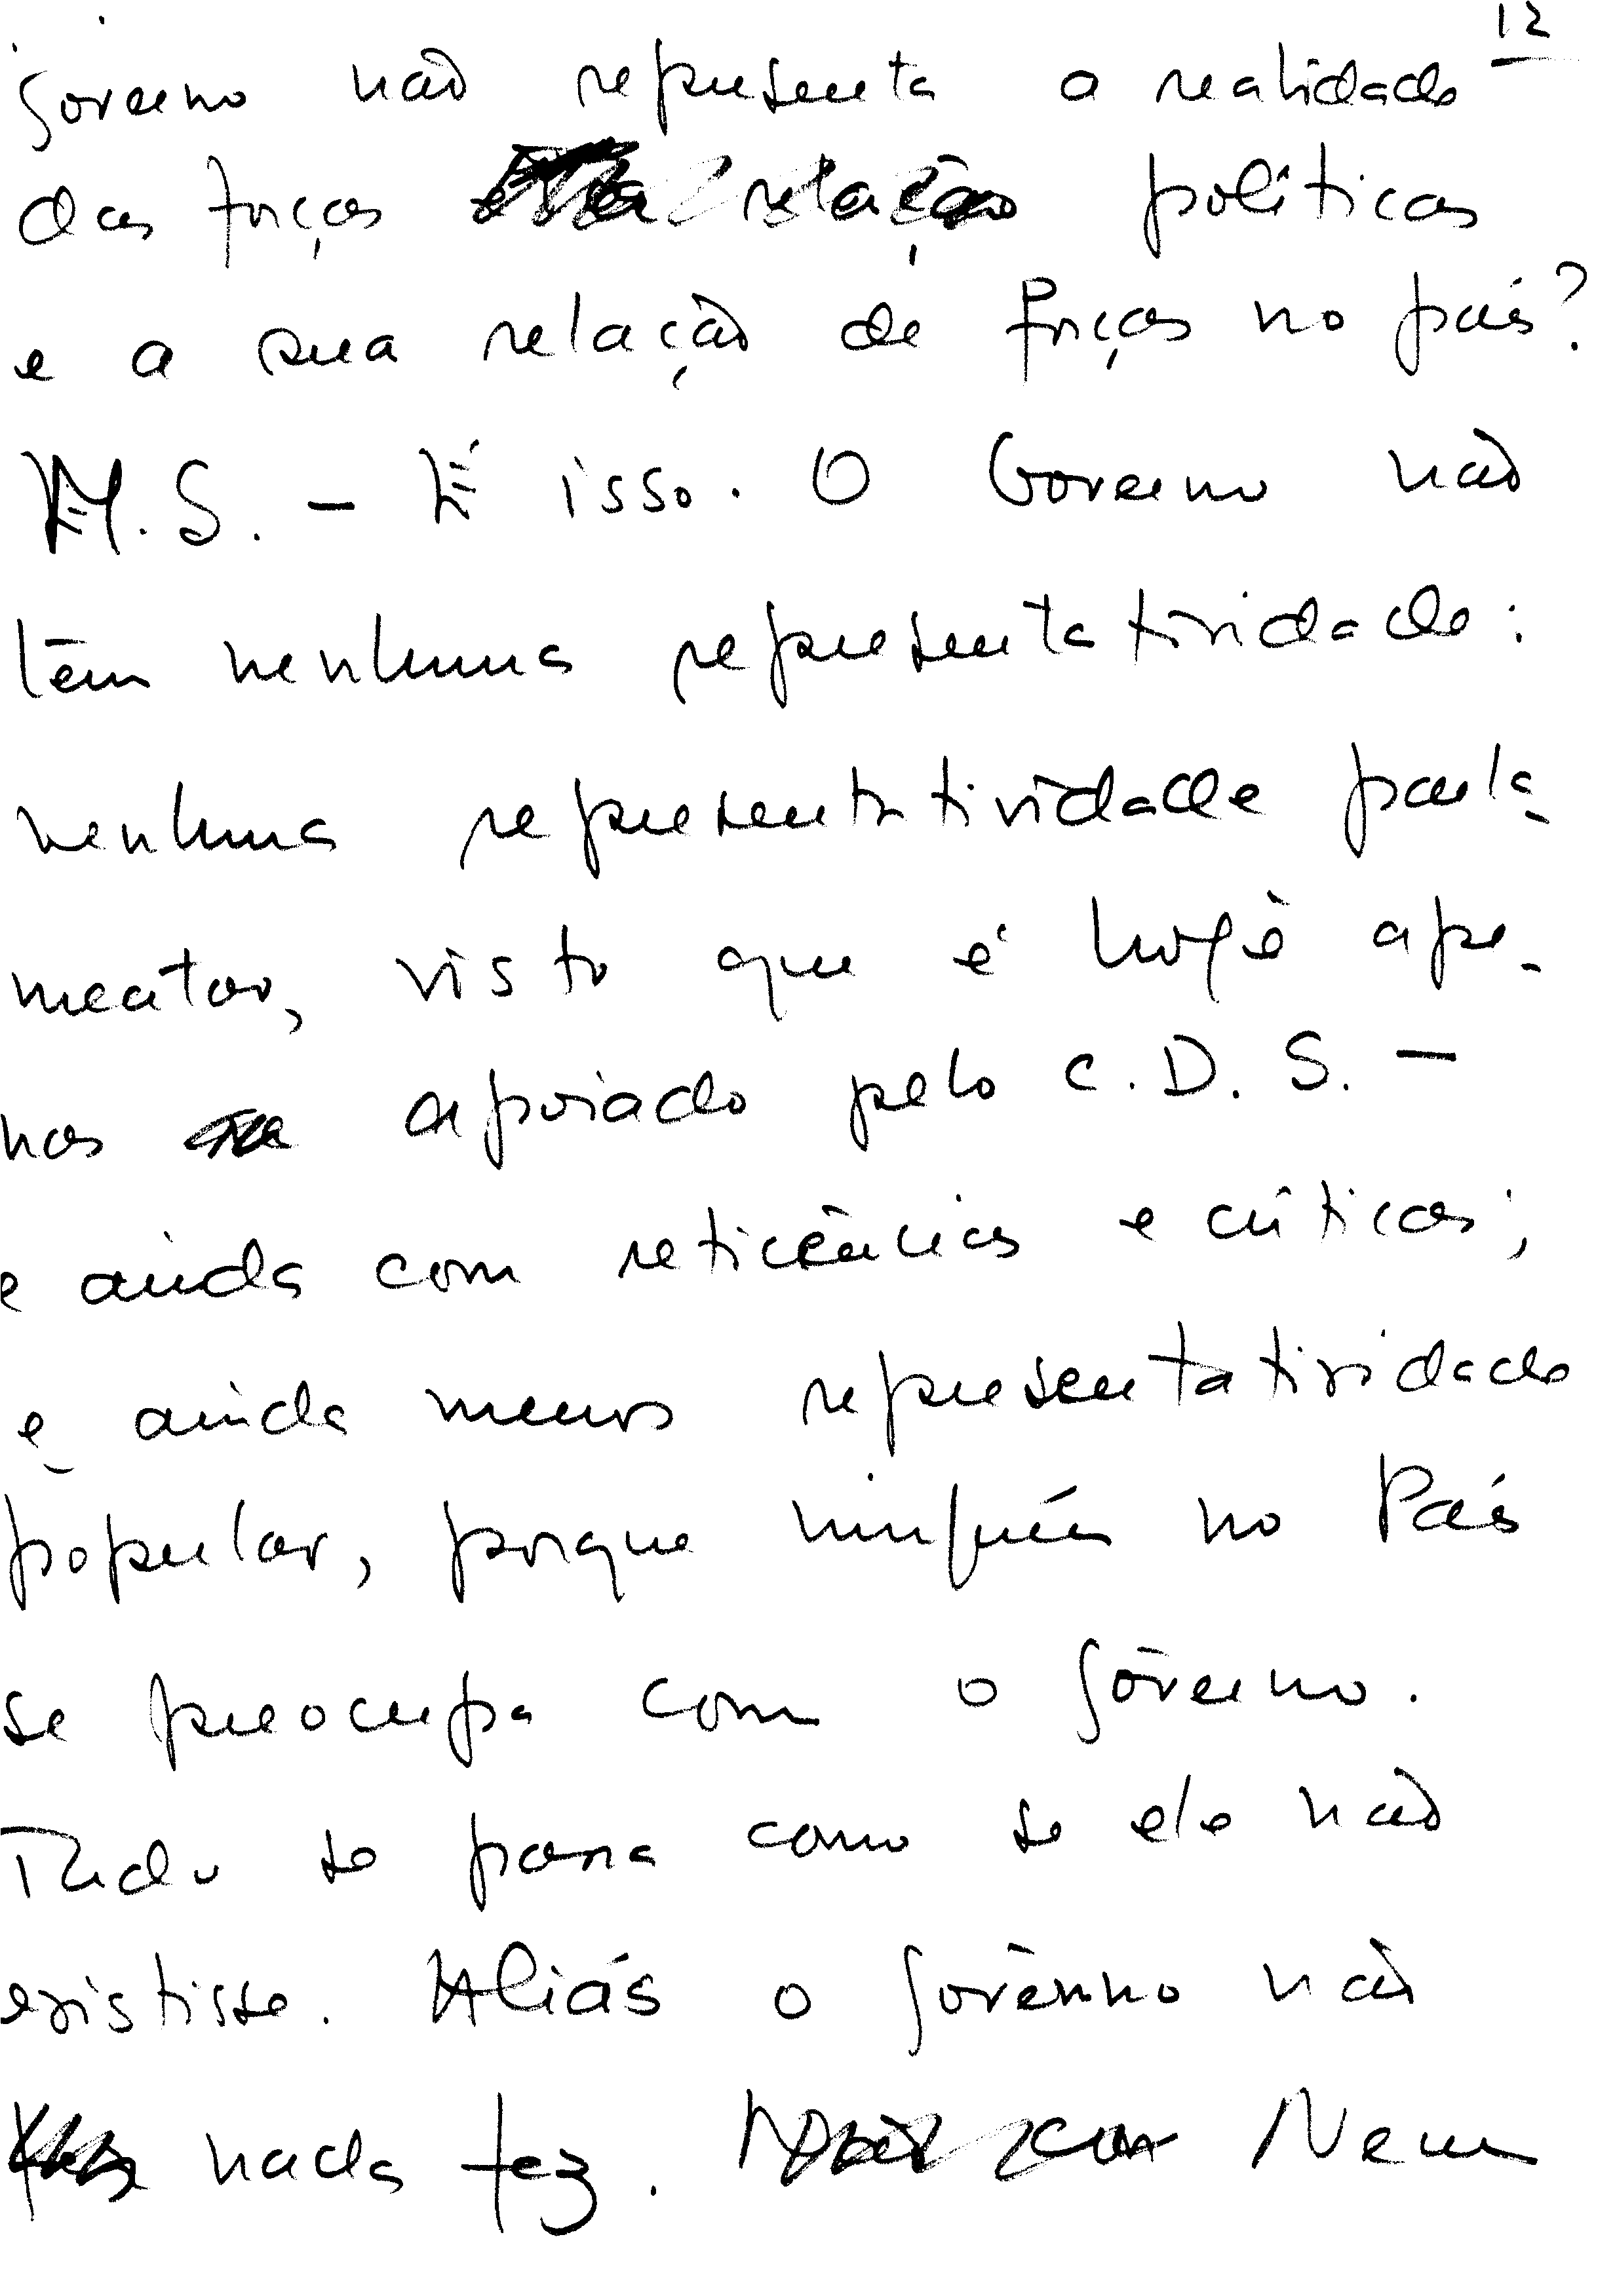 12
governo não representa a realidade
das forças relação políticas
e a sua relação de forças no país?
M.S. - É isso. O Governo não
têm nenhuma representatividade:
nenhuma representatividade parla-
mentar, visto que é hoje ape-
nas apoiado pelo C.D.S. -
e ainda com reticências e críticas;
e ainda menos representatividade
popular, porque ninguém no País
se preocupa com o governo.
Tudo se passa como se ele não
existisse. Aliás o governo não
nada fez. Nem